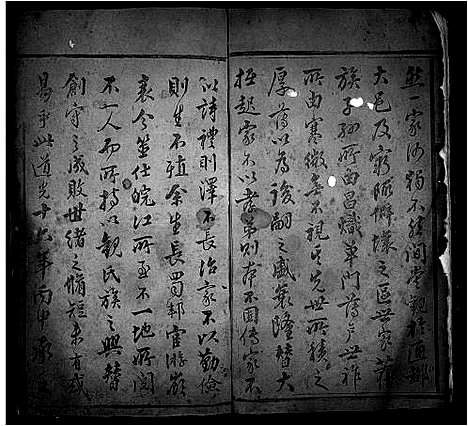 然一家詩獨不經間嘗觀於通都
大邑及窮陬僻壤之區世家舊
族子孫所由昌熾華門蔀戶世祚
所由寒微無不視其先世所積之
厚薄以為後嗣之盛衰隆替大
抵起家不以孝弟則本不固傳家不
以詩禮則澤不長治家不以勤儉
則生不殖余生長蜀邦宦游嶺
表今筮仕皖江所至不一地所閱
不一人而所持以觀氏族之興替
創守之成敗世緒之脩短未有或
易乎此道光十六年丙申